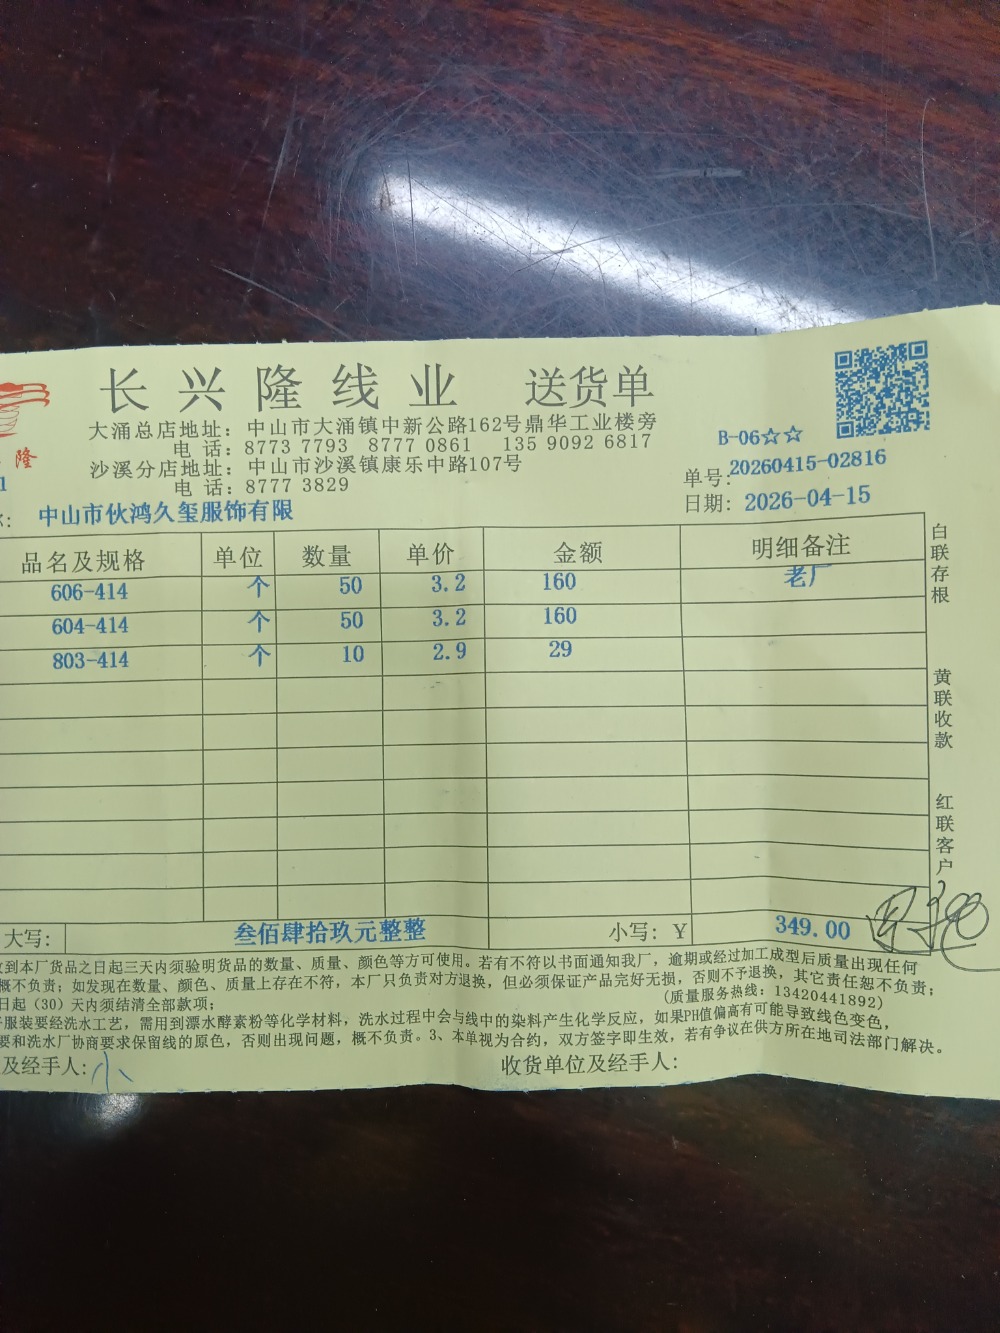 长兴隆线业 送货单
大涌总店地址：中山市大涌镇中新公路162号鼎华工业楼旁
电 话：8773 7793 8777 0861 135 9092 6817
沙溪分店地址：中山市沙溪镇康乐中路107号
电 话：8777 3829
隆
1
B-06☆☆
单号:20260415-02816
日期: 2026-04-15
中山市伙鸿久玺服饰有限
品名及规格 单位 数量 单价 金额 明细备注
606-414 个 50 3.2 160 老厂
604-414 个 50 3.2 160
803-414 个 10 2.9 29
白联存根
黄联收款
红联客户
大写: 叁佰肆拾玖元整整 小写: Y 349.00
到本厂货品之日起三天内须验明货品的数量、质量、颜色等方可使用。若有不符以书面通知我厂，逾期或经过加工成型后质量出现任何
概不负责；如发现在数量、颜色、质量上存在不符，本厂只负责对方退换，但必须保证产品完好无损，否则不予退换，其它责任恕不负责；
日起（30）天内须结清全部款项； (质量服务热线：13420441892)
服装要经洗水工艺，需用到漂水酵素粉等化学材料，洗水过程中会与线中的染料产生化学反应，如果PH值偏高有可能导致线色变色，
要和洗水厂协商要求保留线的原色，否则出现问题，概不负责。3、本单视为合约，双方签字即生效，若有争议在供方所在地司法部门解决。
及经手人:小 收货单位及经手人: